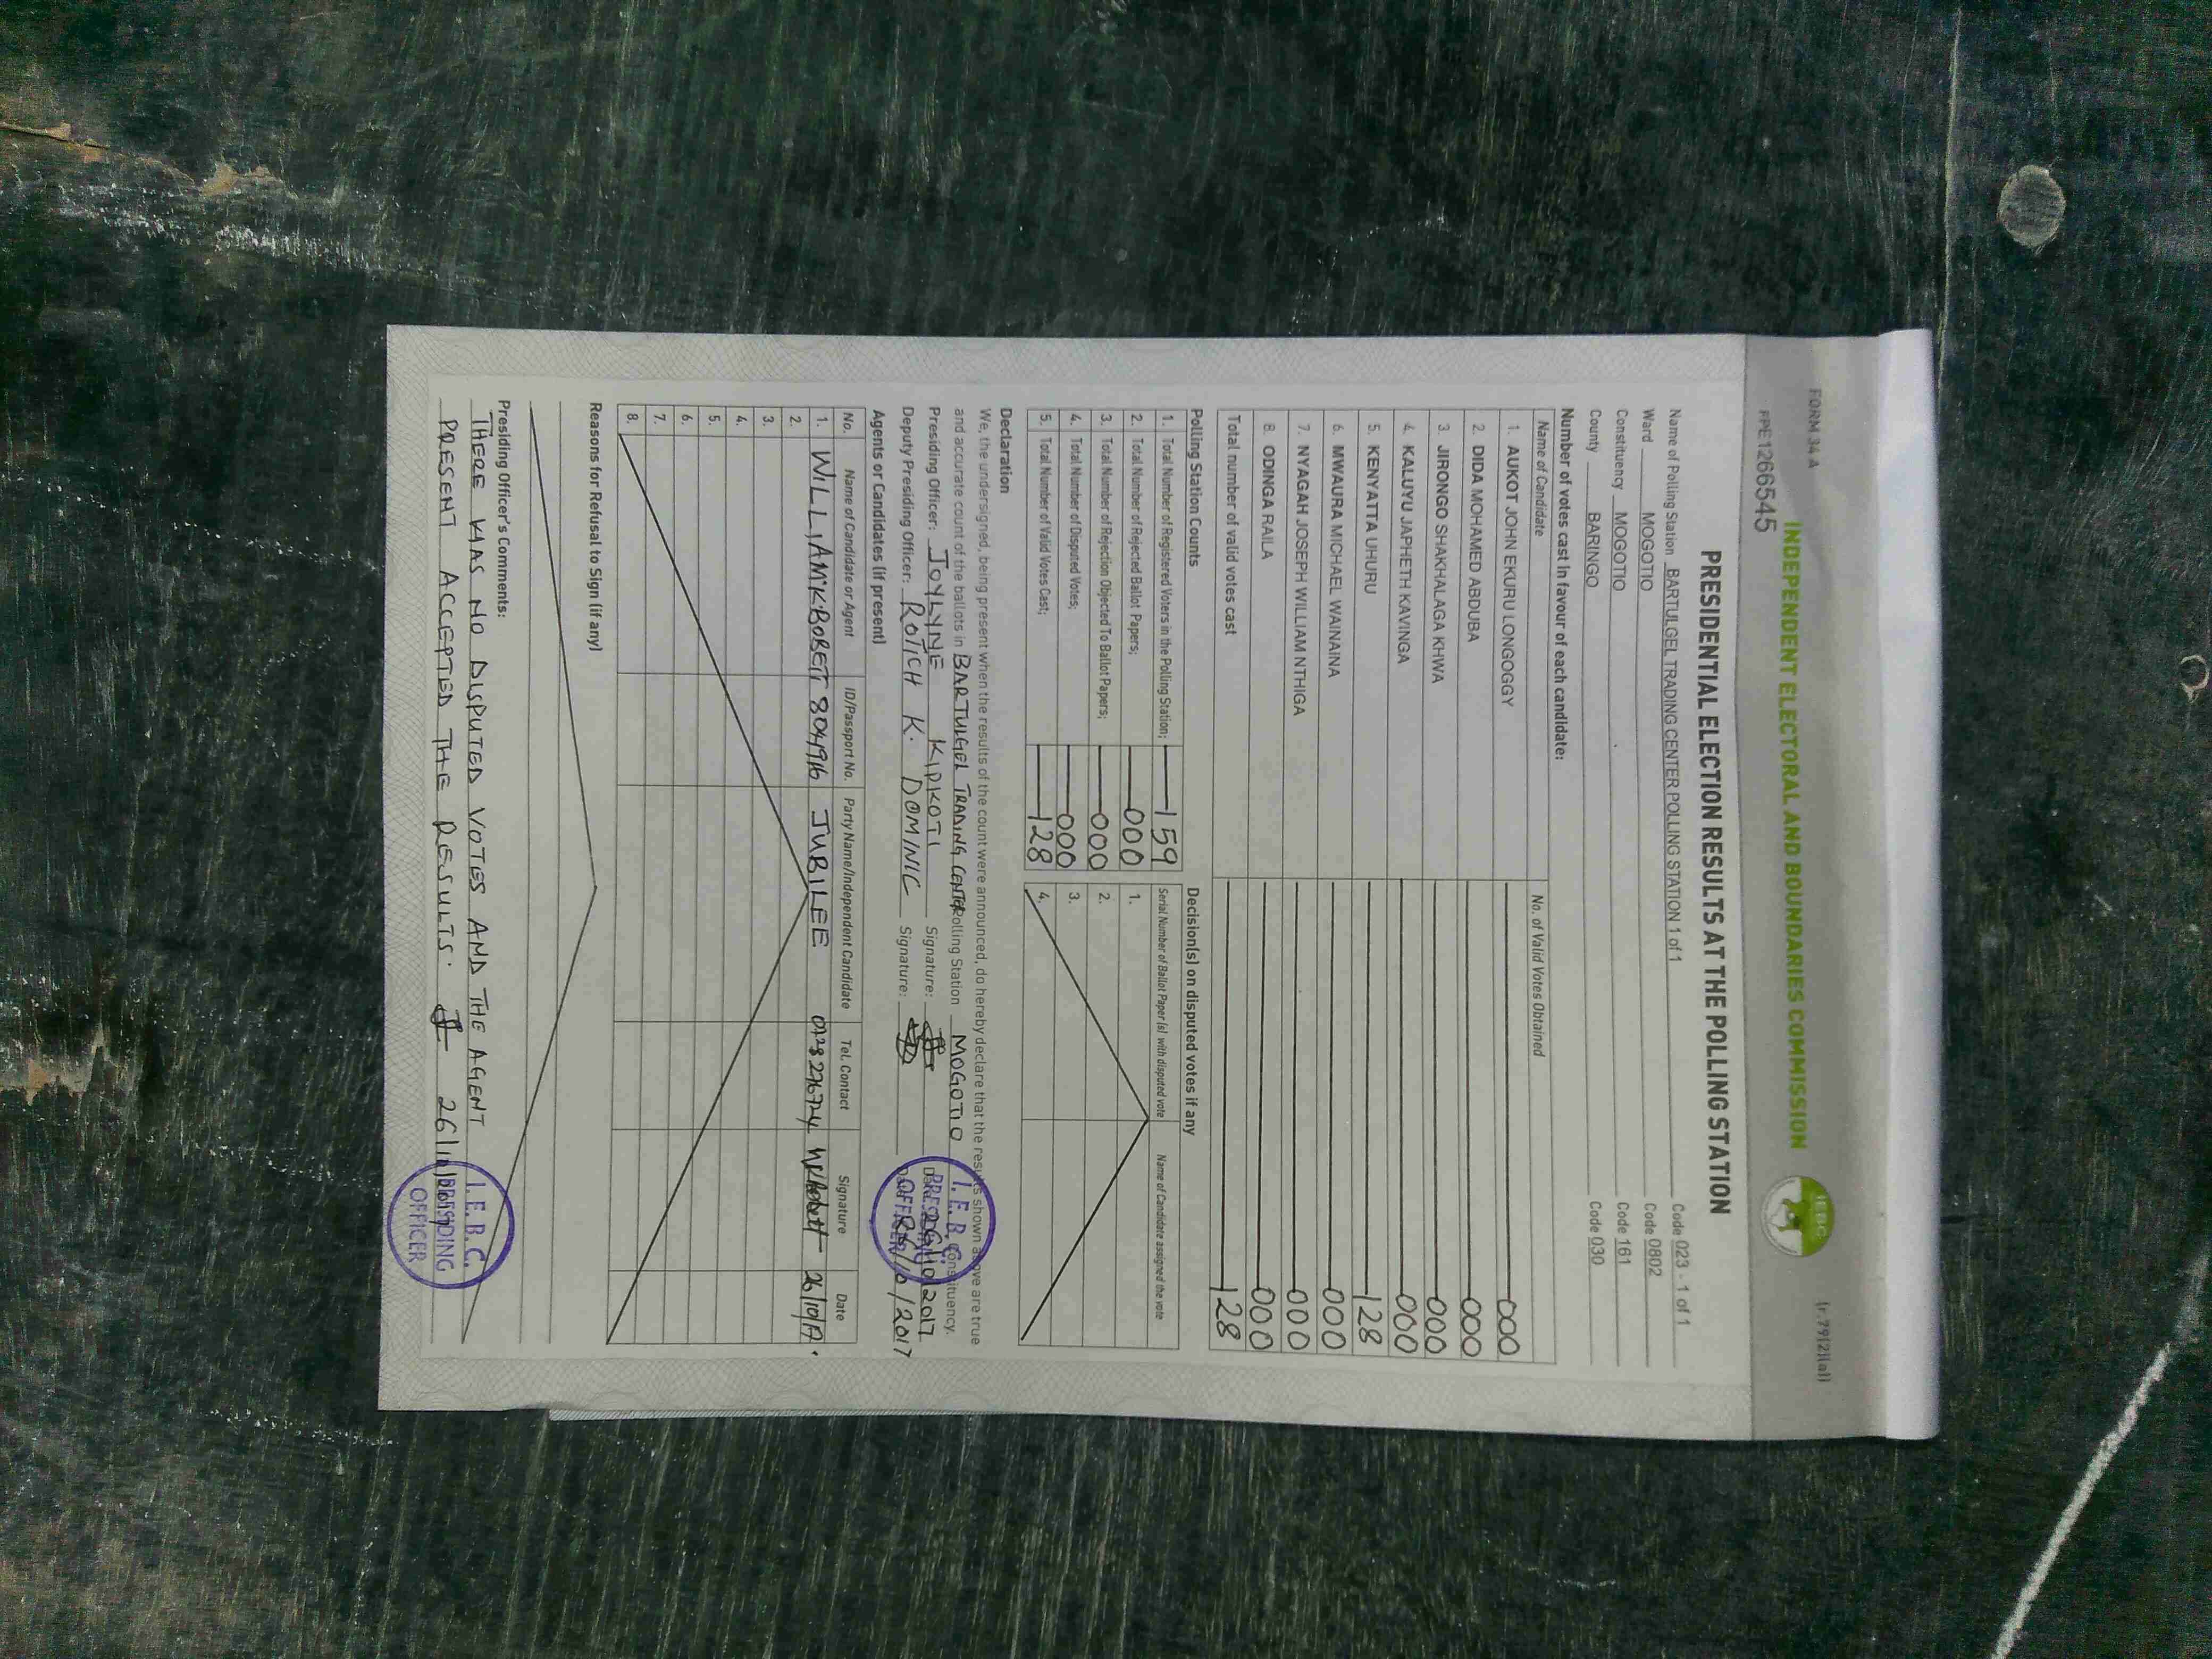 FORM 34 A
(r.79(2)(a))
INDEPENDENT ELECTORAL AND BOUNDARIES COMMISSION
IEBC
PE1266545
PRESIDENTIAL ELECTION RESULTS AT THE POLLING STATION
Name of Polling Station BARTULGEL TRADING CENTER POLLING STATION 1 of 1 Code 023 - 1 of 1
Ward MOGOTIO Code 0802
Constituency MOGOTIO Code 161
County BARINGO Code 030
Number of votes cast In favour of each candidate:
Name of Candidate No. of Valid Votes Obtained
1. AUKOT JOHN EKURU LONGOGGY 000
2. DIDA MOHAMED ABDUBA 000
3. JIRONGO SHAKHALAGA KHWA 000
4. KALUYU JAPHETH KAVINGA 000
5. KENYATTA UHURU 128
6. MWAURA MICHAEL WAINAINA 000
7. NYAGAH JOSEPH WILLIAM NTHIGA 000
8. ODINGA RAILA 000
Total number of valid votes cast 128
Polling Station Counts
1. Total Number of Registered Voters in the Polling Station; 159
2. Total Number of Rejected Ballot Papers; 000
3. Total Number of Rejection Objected To Ballot Papers; 000
4. Total Number of Disputed Votes; 000
5. Total Number of Valid Votes Cast; 128
Decision(s) on disputed votes if any
Serial Number of Ballot Paper (s) with disputed vote Name of Candidate assigned the vote
1.
2.
3.
4.
Declaration
We, the undersigned, being present when the results of the count were announced, do hereby declare that the results shown above are true
and accurate count of the ballots in BARTULGEL TRADING CENTER Polling Station MOGOTIO Constituency.
Presiding Officer: JOYLYNE KIPKOTI Signature: 26/10/2017
Deputy Presiding Officer: ROTICH K. DOMINIC Signature: 26/10/2017
I.E.B.C. PRESIDING OFFICER
Agents or Candidates (if present)
No. Name of Candidate or Agent ID/Passport No. Party Name/Independent Candidate Tel. Contact Signature Date
1. WILLIAM.K.BORETT 8041916 JUBILEE 0728276724 26/10/17.
2.
3.
4.
5.
6.
7.
8.
Reasons for Refusal to Sign (if any)
Presiding Officer's Comments:
THERE WAS NO DISPUTED VOTES AND THE AGENT
PRESENT ACCEPTED THE RESULTS. 26/10/2017
I.E.B.C. PRESIDING OFFICER